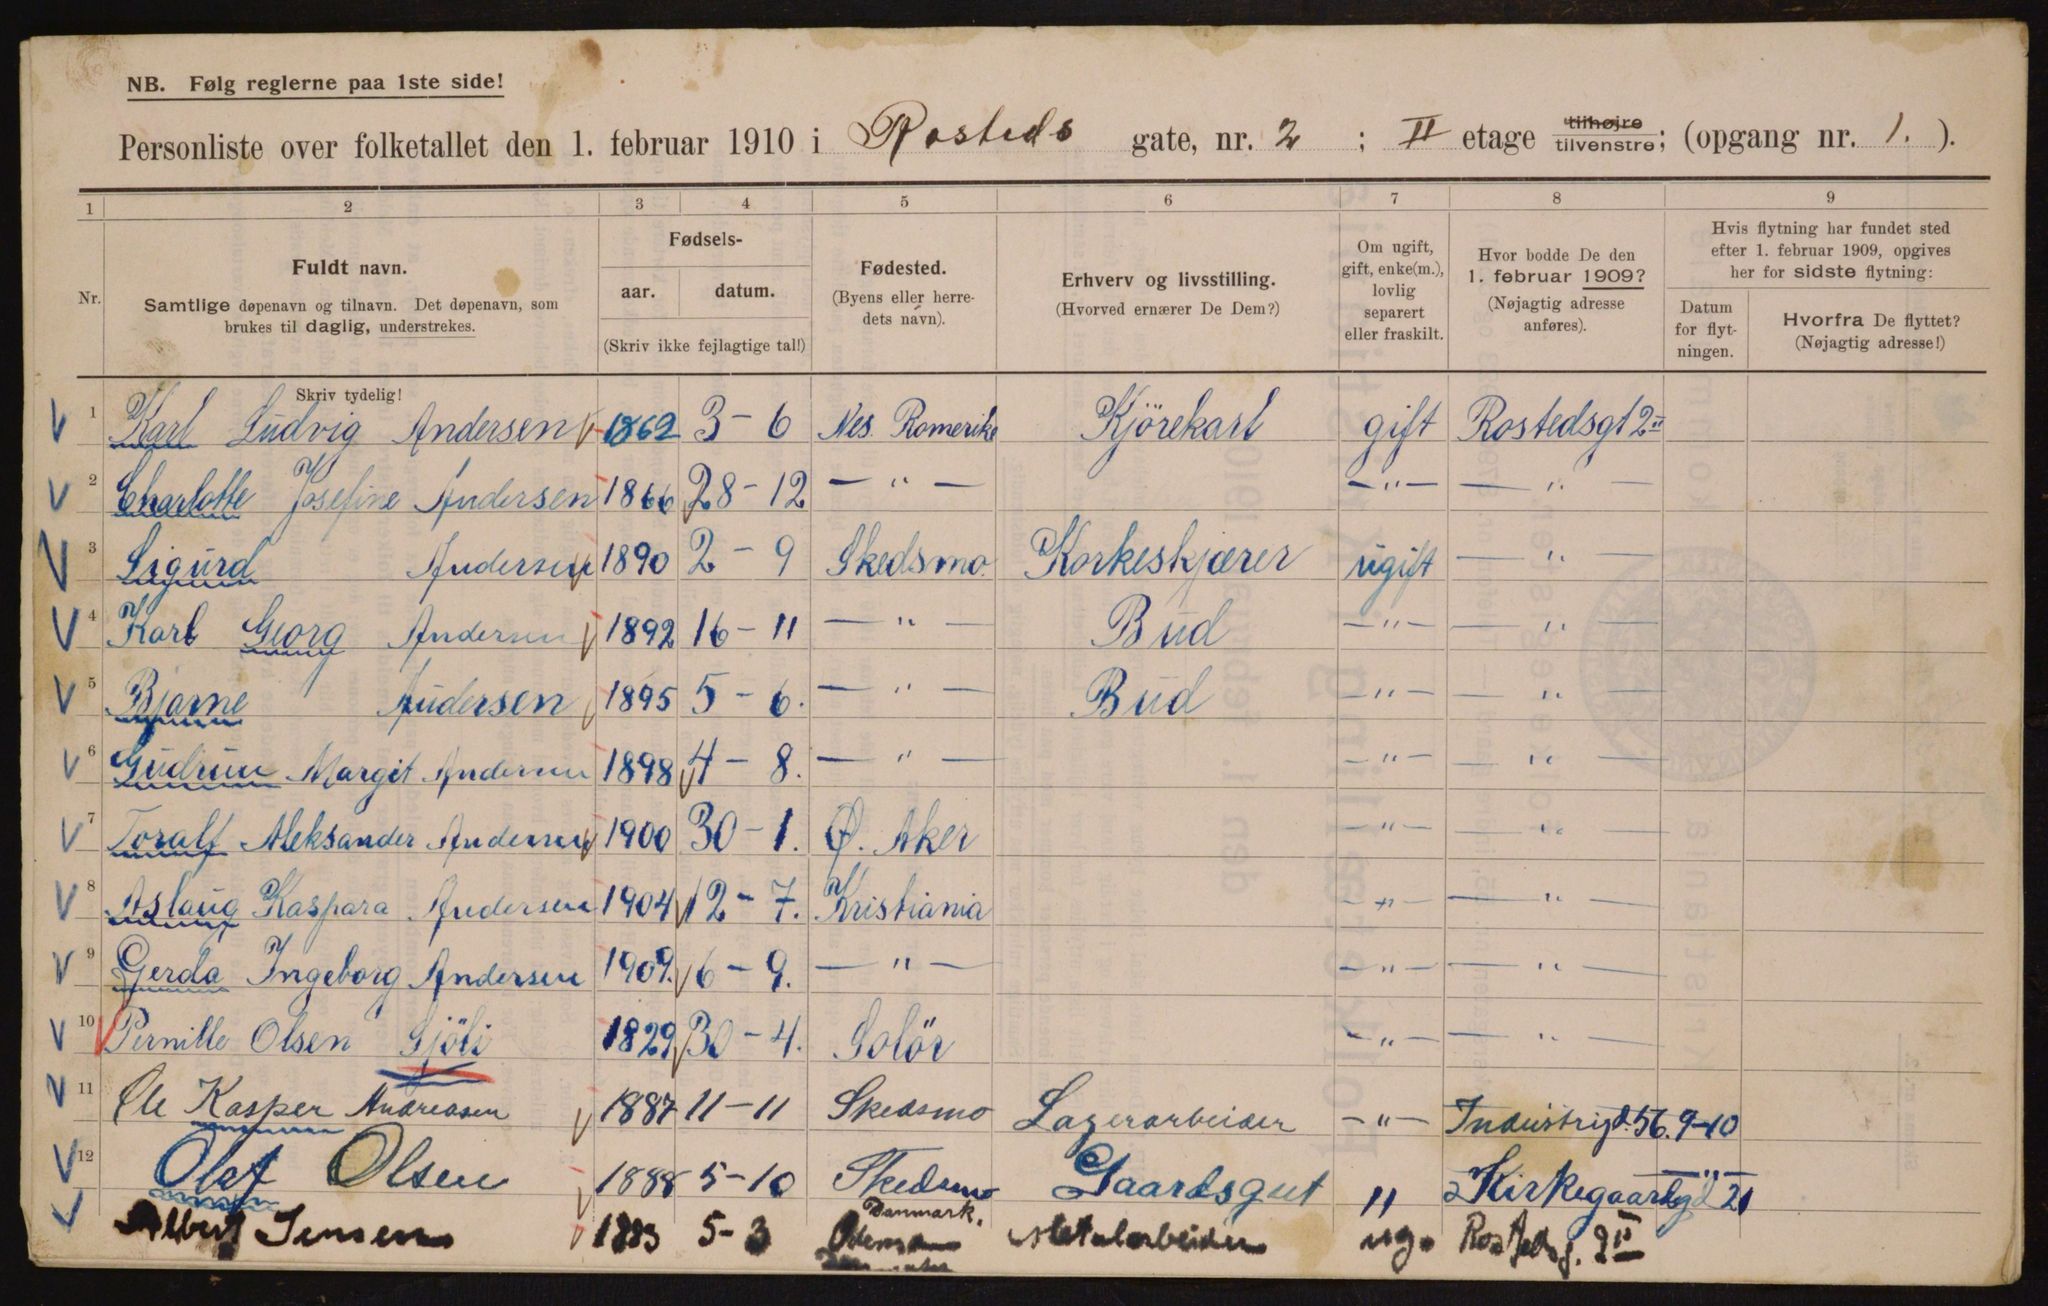 NB. Følg reglerne paa 1ste side!
Personliste over folketallet den 1. februar 1910 i Rosteds gate, nr. 2 ; II etage tilhøjre tilvenstre; (opgang nr. 1. ).
1 2 3 4 5 6 7 8 9
Nr.
Fuldt navn.
Samtlige døpenavn og tilnavn. Det døpenavn, som
brukes til daglig, understrekes.
Skriv tydelig!
Fødsels-
aar. datum.
(Skriv ikke fejlagtige tal!)
Fødested.
(Byens eller herre-
dets navn).
Erhverv og livsstilling.
(Hvorved ernærer De Dem?)
Om ugift,
gift, enke(m.),
lovlig
separert
eller fraskilt.
Hvor bodde De den
1. februar 1909?
(Nøjagtig adresse
anføres).
Hvis flytning har fundet sted
efter 1. februar 1909, opgives
her for sidste flytning:
Datum
for flyt-
ningen.
Hvorfra De flyttet?
(Nøjagtig adresse!)
1 Karl Ludvig Andersen 1862 3 - 6 Nes. Romerike Kjörekarl gift Rostedsgt 2 II
2 Charlotte Josefine Andersen 1866 28 - 12 — " — — " — — " —
3 Sigurd Andersen 1890 2 - 9 Skedsmo. Korkeskjærer ugift — " —
4 Karl Georg Andersen 1892 16 - 11 — " — Bud — " — — " —
5 Bjarne Andersen 1895 5 - 6. — " — Bud — " — — " —
6 Gudrun Margit Andersen 1898 4 - 8. — " — — " — — " —
7 Toralf Aleksander Andersen 1900 30 - 1. Ø. Aker — " — — " —
8 Aslaug Kaspara Andersen 1904 12 - 7. Kristiania — " — — " —
9 Gerda Ingeborg Andersen 1909. 6 - 9. — " — — " — — " —
10 Pernille Olsen Sjöli 1829 30 - 4. Solör — " — — " —
11 Ole Kasper Andreasen 1887 11 - 11 Skedsmo Lagerarbeider — " — Industrigd. 56. 9-10
12 Olaf Olsen 1888 5 - 10 Skedsmo Gaardsgut " Kirkegaardsgd 21
Albert Jensen 1883 5 - 3 Danmark. Metalarbeider ug. Rostedsg. 2 II